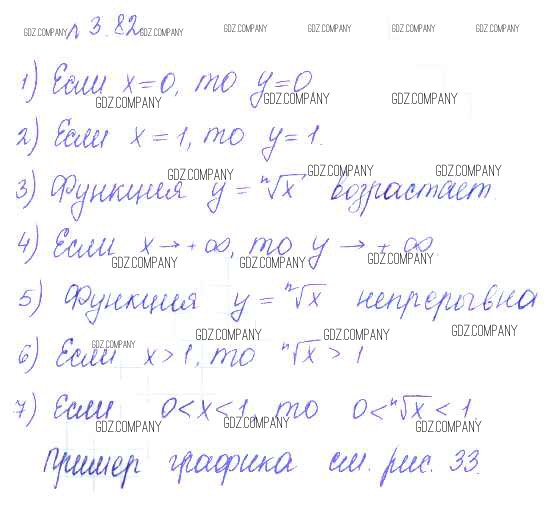 GDZ.COMPANY № 3.82 GDZ.COMPANY GDZ.COMPANY GDZ.COMPANY GDZ.COMPANY GDZ.COMPANY
1) Если x=0, то y=0
GDZ.COMPANY GDZ.COMPANY GDZ.COMPANY
2) Если x=1, то y=1.
GDZ.COMPANY GDZ.COMPANY GDZ.COMPANY
3) Функция y=ⁿ√x возрастает.
4) Если x→+∞, то y→+∞.
GDZ.COMPANY GDZ.COMPANY GDZ.COMPANY
5) Функция y=ⁿ√x непрерывна
GDZ.COMPANY GDZ.COMPANY GDZ.COMPANY
GDZ.COMPANY
6) Если x>1, то ⁿ√x>1
7) Если 0<x<1, то 0<ⁿ√x<1.
GDZ.COMPANY GDZ.COMPANY GDZ.COMPANY
Пример графика см. рис. 33.